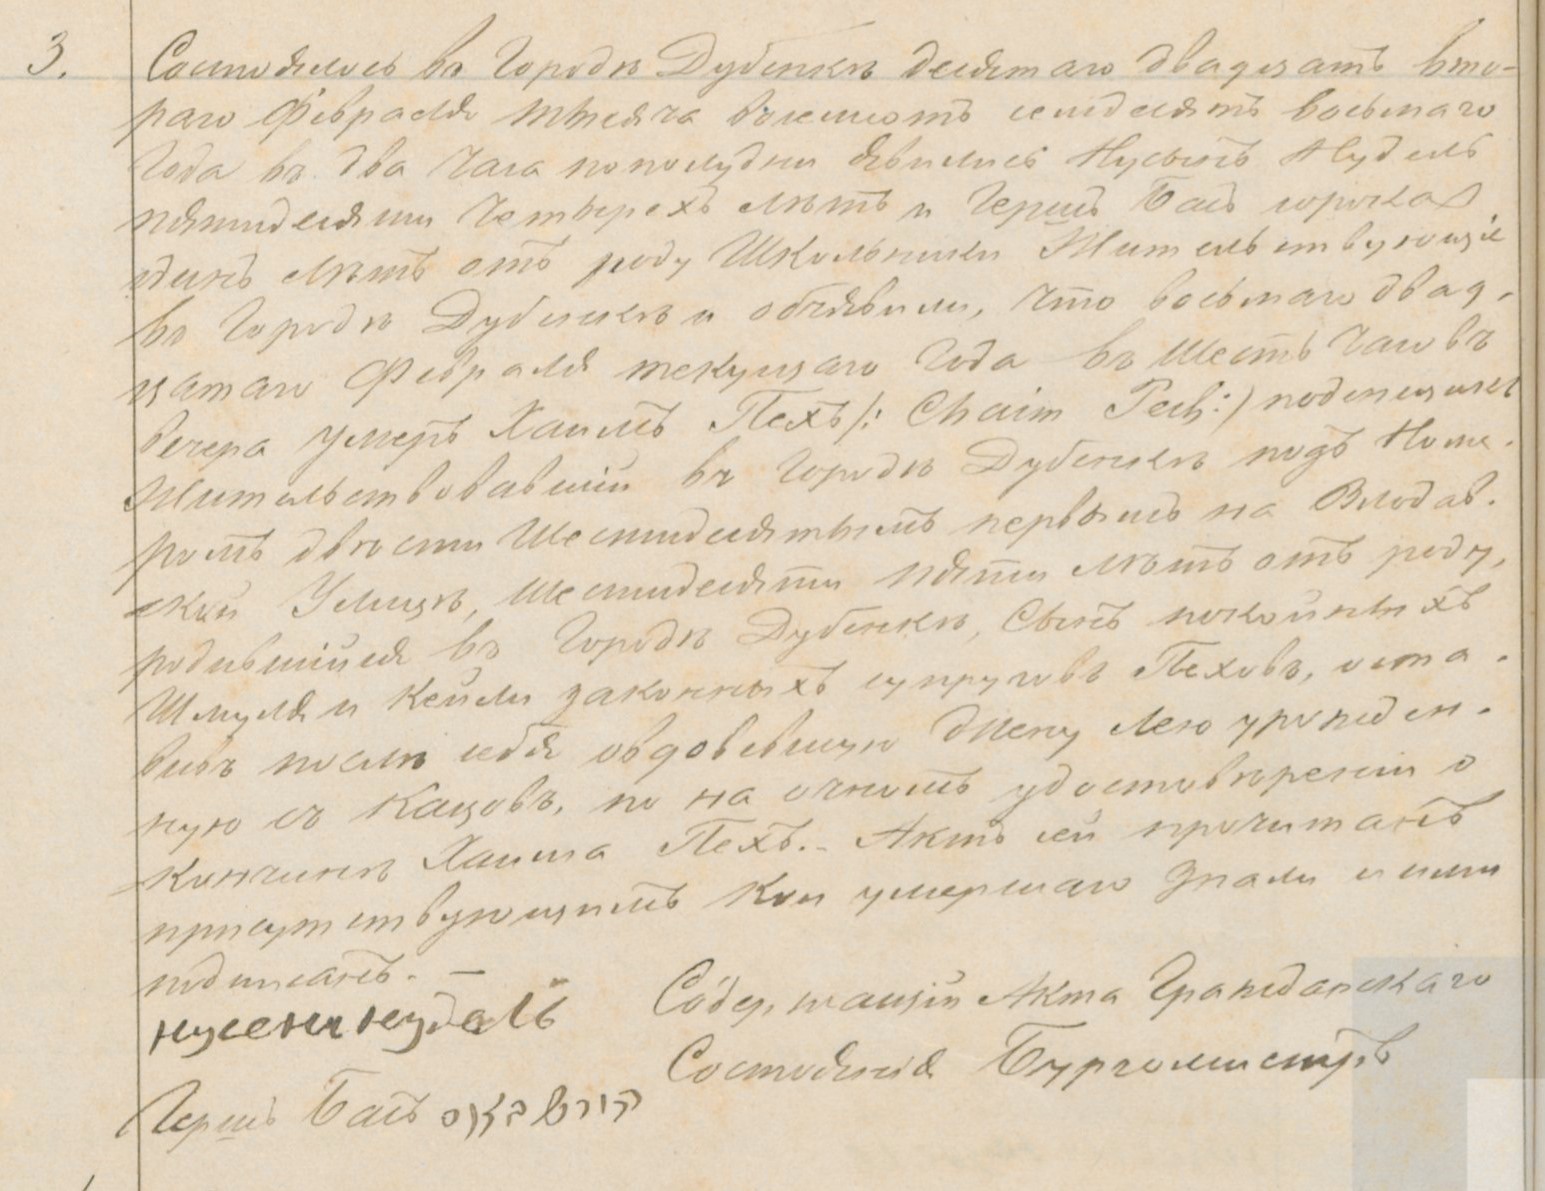 3. Состоялось въ Городѣ Дубенкѣ десятаго двадцать вто-
раго Февраля тысяча восемьсотъ семьдесятъ восьмаго
Года въ два часа пополудни явились Нусынъ Нудель
пятидесяти четырехъ лѣтъ и Гершъ Басъ сорока о
динъ лѣтъ отъ роду Школьники Жительствующіе
въ Городѣ Дубенкѣ и объявили, что восьмаго двад-
цатаго Февраля текущаго Года въ Шесть Часовъ
вечера умеръ Хаимъ Пехъ /: Chaim Pech :/ поденщикъ
Жительствовавшій въ Городѣ Дубенкѣ подъ Номе-
ромъ двѣсти Шестидесятымъ первымъ на Влодав-
ской Улицѣ, Шестидесяти пяти лѣтъ отъ роду,
родившійся въ Городѣ Дубенкѣ, Сынъ покойныхъ
Шмуля и Кейли законныхъ супруговъ Пеховъ, оста-
вивъ послѣ себя овдовевшую Жену Лею урожден-
ную съ Кацовъ, по на очномъ удостовѣреніи о
кончинѣ Хаима Пехъ.- Актъ сей прочитанъ
присутствующимъ кои умершаго знали и ими
подписанъ. —
нусен нудель
Содержащій Акта Гражданскаго
Состоянія Бургомистръ
Гершъ Басъ הירש באס